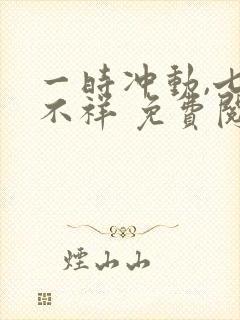 一時冲動,七
不祥 免費閱
煙山山